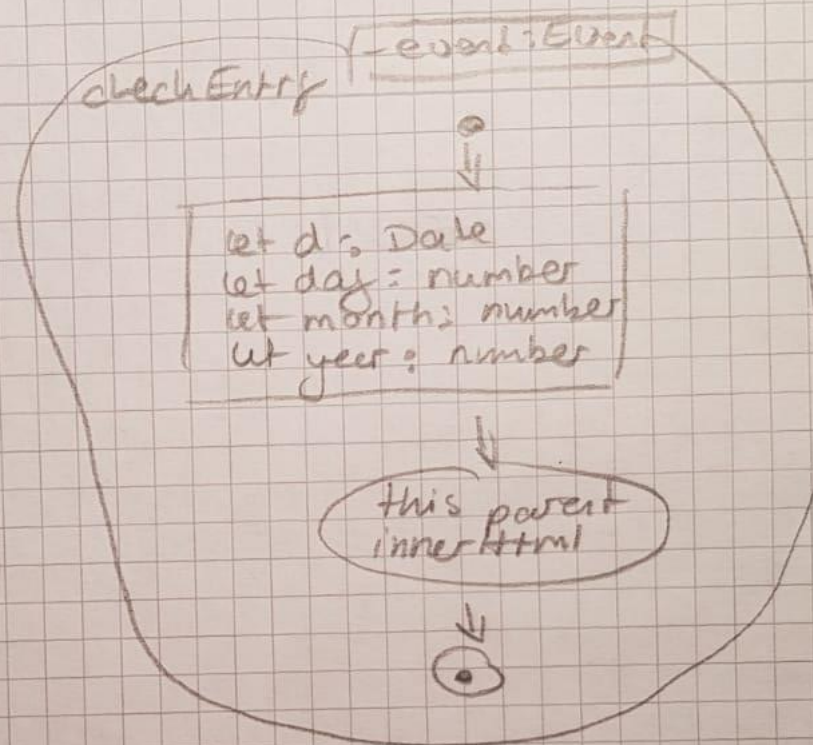 checkEntry
-event: Event
let d: Date
let day: number
let month: number
let year: number
this parent
innerHtml